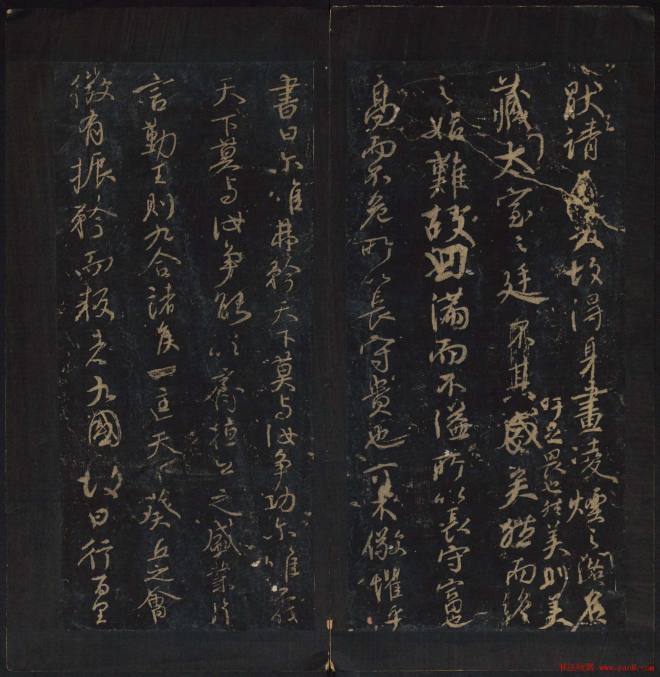 猒之請故得身畫凌煙之閣名
吁足畏也然美則美
藏太室之廷矣而終
之始難故曰滿而不溢所以長守富也
高而不危所以長守貴也可不儆懼乎
書曰爾唯弗矜天下莫與汝爭功爾唯不伐
天下莫與汝爭能以齊桓公之盛業片
言勤王則九合諸侯一匡天下葵丘之會
微有振矜而叛者九國故曰行百里